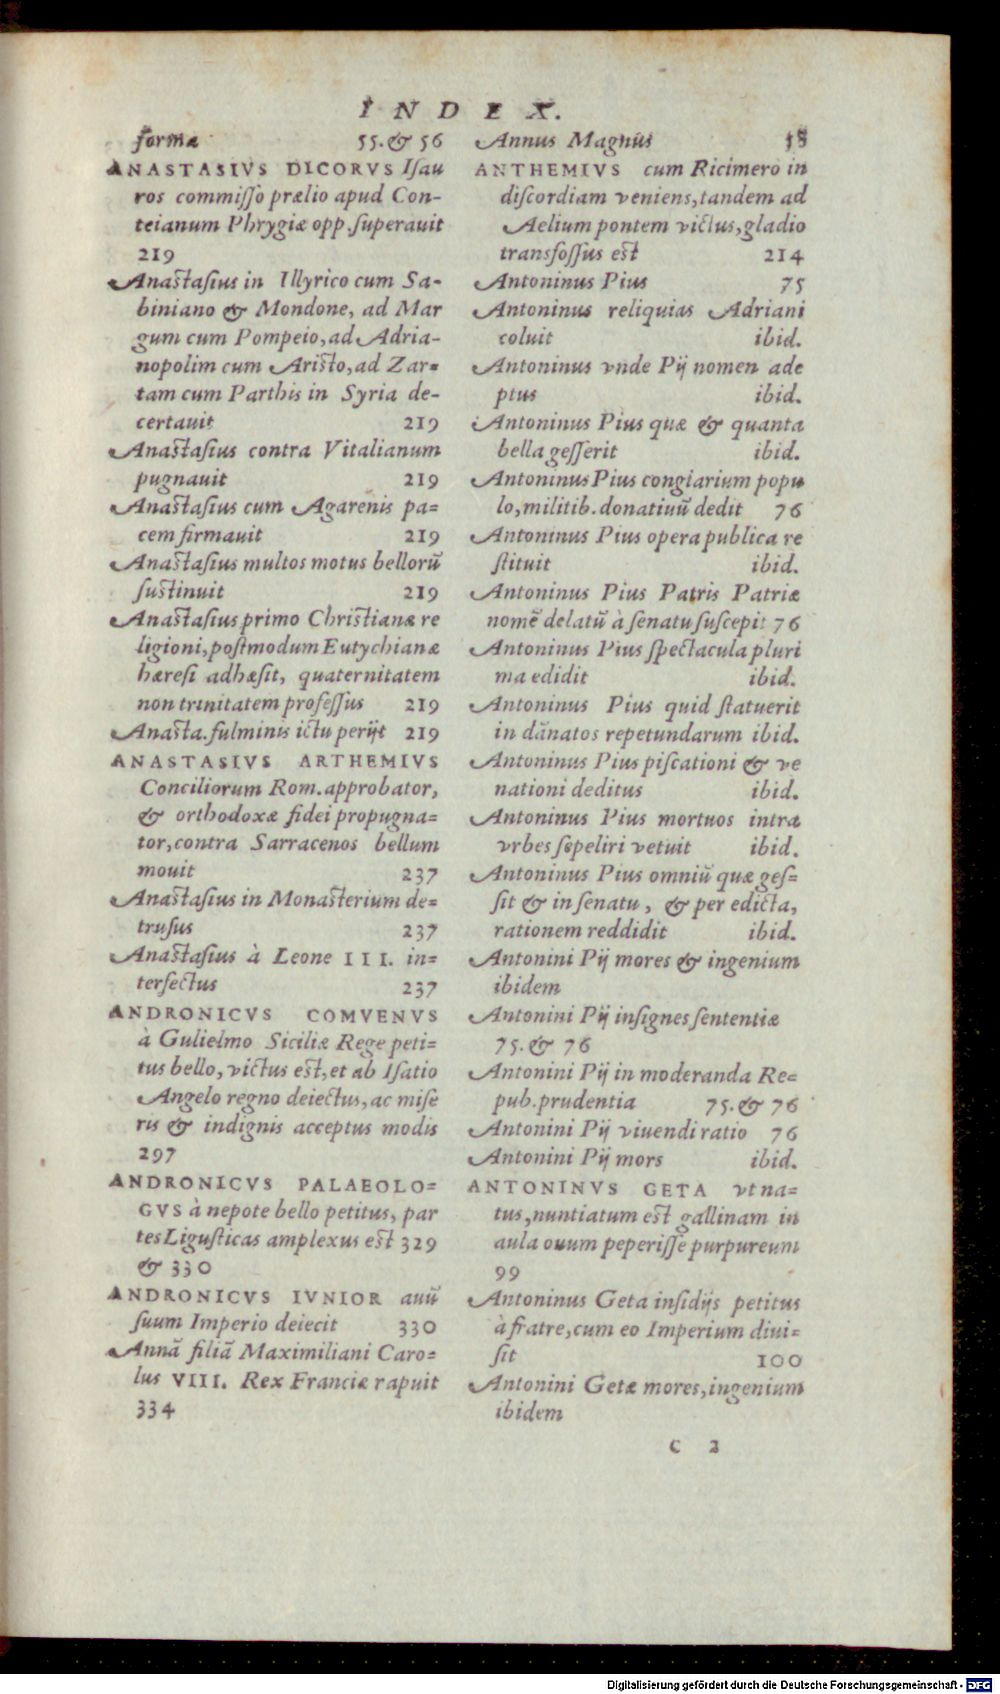 INDEX.
formæ 55. & 56
ANASTASIVS DICORVS Iſau
ros commiſſo prælio apud Con-
teianum Phrygiæ opp. ſuperauit
219
Anaſtaſius in Illyrico cum Sa-
biniano & Mondone, ad Mar
gum cum Pompeio, ad Adria-
nopolim cum Ariſto, ad Zar-
tam cum Parthis in Syria de-
certauit 219
Anaſtaſius contra Vitalianum
pugnauit 219
Anaſtaſius cum Agarenis pa-
cem firmauit 219
Anaſtaſius multos motus bellorū
ſuſtinuit 219
Anaſtaſius primo Chriſtianæ re
ligioni, poſtmodum Eutychianæ
hæreſi adhæſit, quaternitatem
non trinitatem profeſſus 219
Anaſta. fulminis ictu perijt 219
ANASTASIVS ARTHEMIVS
Conciliorum Rom. approbator,
& orthodoxæ fidei propugna-
tor, contra Sarracenos bellum
mouit 237
Anaſtaſius in Monaſterium de-
truſus 237
Anaſtaſius à Leone III. in-
terfectus 237
ANDRONICVS COMVENVS
à Gulielmo Siciliæ Rege peti-
tus bello, victus eſt, et ab Iſatio
Angelo regno deiectus, ac miſe
ris & indignis acceptus modis
297
ANDRONICVS PALAEOLO-
GVS à nepote bello petitus, par
tes Liguſticas amplexus eſt 329
& 330
ANDRONICVS IVNIOR auū
ſuum Imperio deiecit 330
Annā filiā Maximiliani Caro-
lus VIII. Rex Franciæ rapuit
334
Annus Magnus 58
ANTHEMIVS cum Ricimero in
diſcordiam veniens, tandem ad
Aelium pontem victus, gladio
transfoſſus eſt 214
Antoninus Pius 75
Antoninus reliquias Adriani
coluit ibid.
Antoninus vnde Pij nomen ade
ptus ibid.
Antoninus Pius quæ & quanta
bella geſſerit ibid.
Antoninus Pius congiarium popu
lo, militib. donatiuū dedit 76
Antoninus Pius opera publica re
ſtituit ibid.
Antoninus Pius Patris Patriæ
nomē delatū à ſenatu ſuſcepit 76
Antoninus Pius ſpectacula pluri
ma edidit ibid.
Antoninus Pius quid ſtatuerit
in dānatos repetundarum ibid.
Antoninus Pius piſcationi & ve
nationi deditus ibid.
Antoninus Pius mortuos intra
vrbes ſepeliri vetuit ibid.
Antoninus Pius omniū quæ geſ-
ſit & in ſenatu, & per edicta,
rationem reddidit ibid.
Antonini Pij mores & ingenium
ibidem
Antonini Pij inſignes ſententiæ
75. & 76
Antonini Pij in moderanda Re-
pub. prudentia 75. & 76
Antonini Pij viuendi ratio 76
Antonini Pij mors ibid.
ANTONINVS GETA vt na-
tus, nuntiatum eſt gallinam in
aula ouum peperiſſe purpureum
99
Antoninus Geta inſidijs petitus
à fratre, cum eo Imperium diui-
ſit 100
Antonini Getæ mores, ingenium
ibidem
C 2
Digitalisierung gefördert durch die Deutsche Forschungsgemeinschaft - DFG